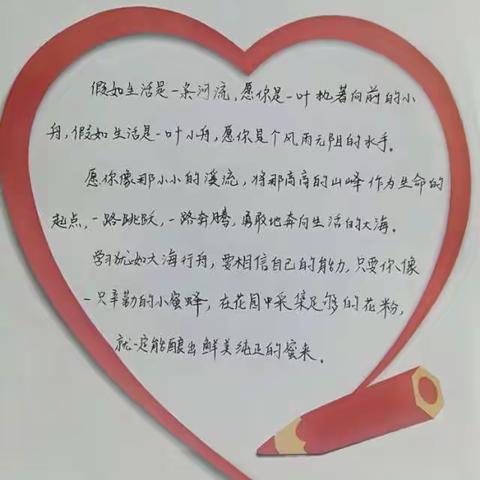 假如生活是一条河流,愿你是一叶执著向前的小
舟,假如生活是一叶小舟,愿你是个风雨无阻的水手。
愿你像那小小的溪流,将那高高的山峰作为生命的
起点,一路跳跃,一路奔腾,勇敢地奔向生活的大海。
学习犹如大海行舟,要相信自己的能力,只要你像
一只辛勤的小蜜蜂,在花园中采集足够的花粉,
就一定能酿出鲜美纯正的蜜来。